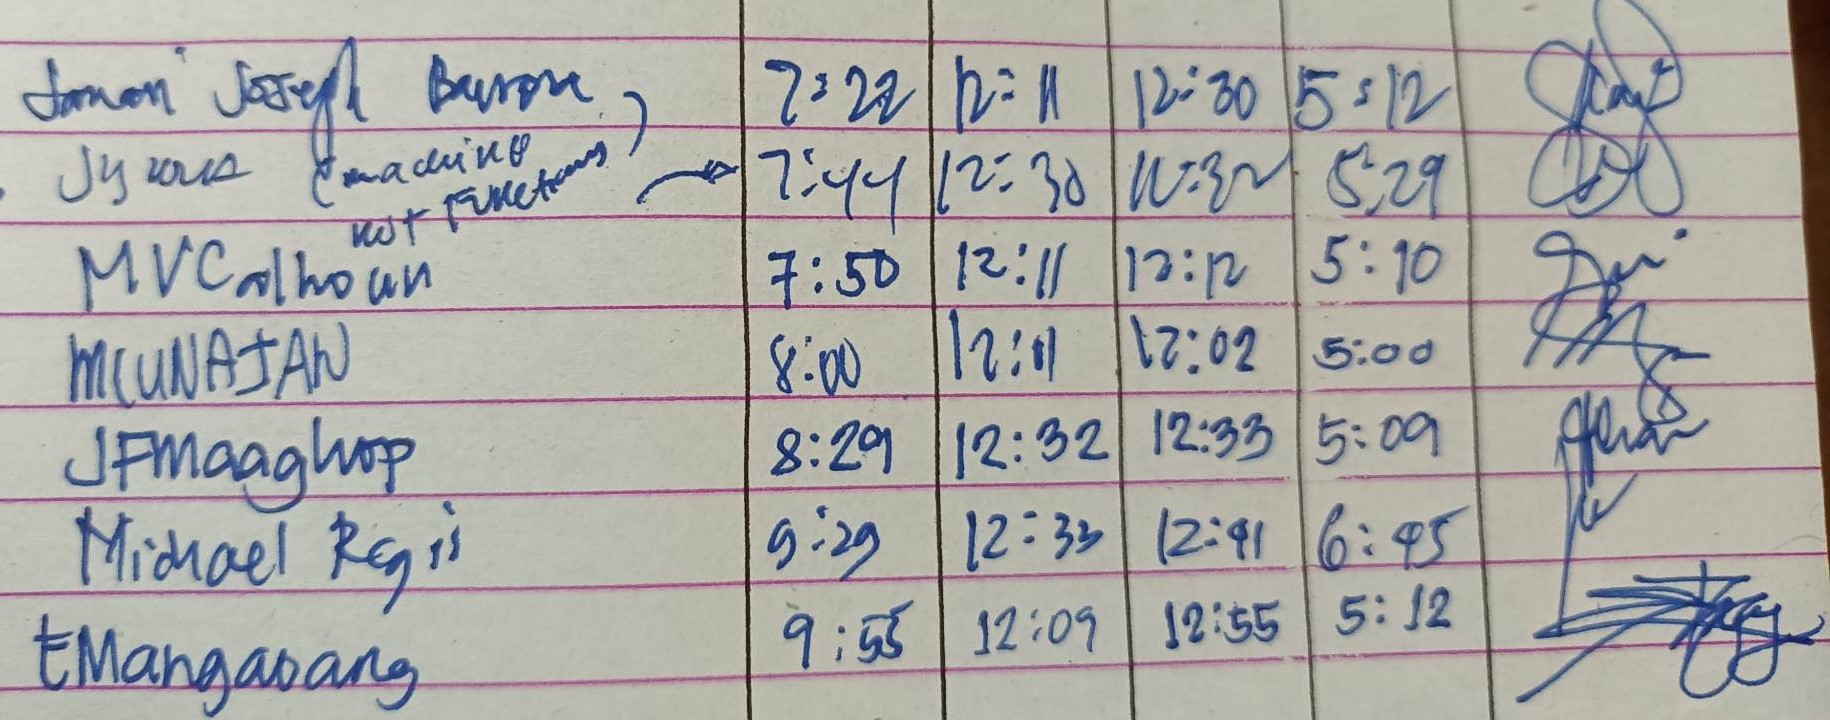 Joseph 7:22 12:11 12:30 5:12
(machine 7:44 12:30 5:29
not functioning
MVCalhoun 7:50 12:11 12:12 5:10
MCUNAJAN 8:00 12:11 12:02 5:00
JFMaaghop 8:29 12:32 12:33 5:09
Michael Regis 9:29 12:33 12:41 6:45
EMangaoang 9:55 12:09 12:55 5:12